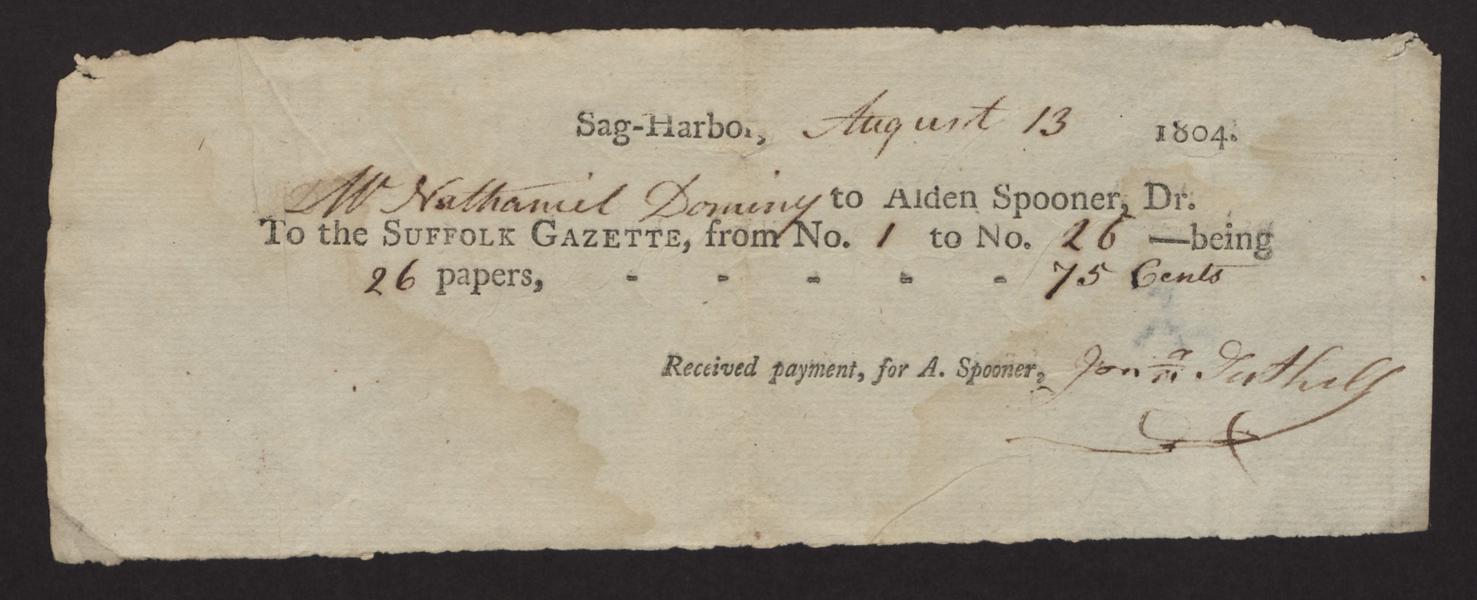 Sag-Harbor, August 13 1804.
Mr Nathaniel Dominy to Alden Spooner, Dr.
To the SUFFOLK GAZETTE, from No. 1 to No. 26 —being
26 papers, - - - - - 75 Cents
Received payment, for A. Spooner, Jona Tuthill